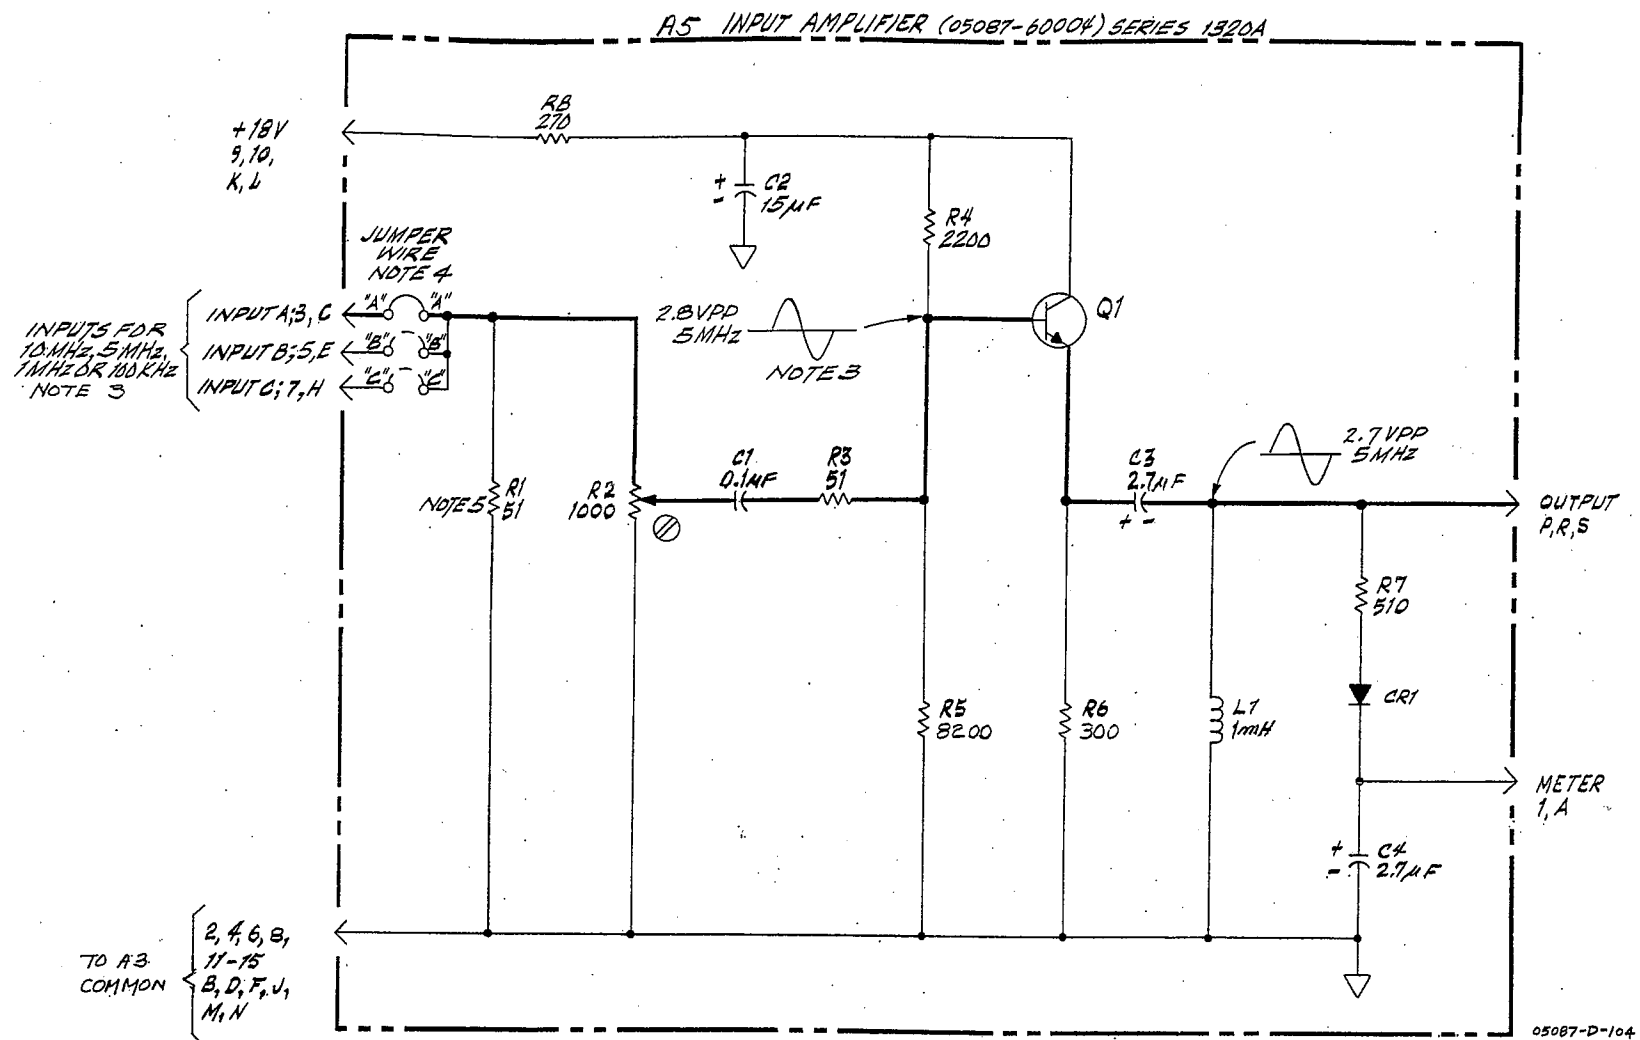 A5 INPUT AMPLIFIER (05087-60004) SERIES 1320A
+18V
9,10,
K,L
R8
270
C2
15µF
+
-
R4
2200
JUMPER
WIRE
NOTE 4
INPUTS FOR
10MHz, 5MHz,
1MHz OR 100KHz
NOTE 3
INPUT A;3,C
"A" "A"
INPUT B;5,E
"B" "B"
INPUT C;7,H
"C" "C"
2.8VPP
5MHz
NOTE 3
Q1
NOTE 5
R1
51
R2
1000
C1
0.1µF
R3
51
C3
2.7µF
+ -
2.7VPP
5MHz
OUTPUT
P,R,S
R7
510
CR1
R5
8200
R6
300
L1
1mH
METER
1,A
+
-
C4
2.7µF
TO A3
COMMON
2,4,6,8,
11-15
B,D,F,J,
M,N
05087-D-104